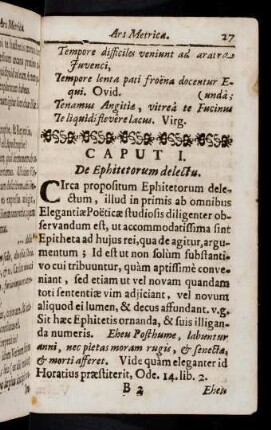 Ars Metrica. 27
Tempore difficiles veniunt ad aratra
Juvenci,
Tempore lenta pati froena docentur E-
qui. Ovid. (undâ;
Tenamus Angitiæ, vitreâ te Fucinus
Te liquidi flevere lacus. Virg.
CAPUT I.
De Ephitetorum delectu.
CIrca propositum Ephitetorum dele-
ctum, illud in primis ab omnibus
Elegantiæ Poëticæ studiosis diligenter ob-
servandum est, ut accommodatissima sint
Epitheta ad hujus rei, qua de agitur, argu-
mentum; Id est ut non solùm substanti-
vo cui tribuuntur, quàm aptissimè conve-
niant, sed etiam ut vel novam quandam
toti sententiæ vim adjiciant, vel novum
aliquod ei lumen, & decus affundant. v.g.
Sit hæc Ephitetis ornanda, & suis illigan-
da numeris. Eheu Posthume, labuntur
anni, nec pietas moram rugis, & senecta,
& morti afferet. Vide quàm eleganter id
Horatius præstiterit, Ode. 14. lib. 2.
B 2 Eheu